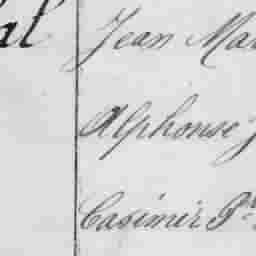 al
Jean Ma
Alphonse
Casimir P